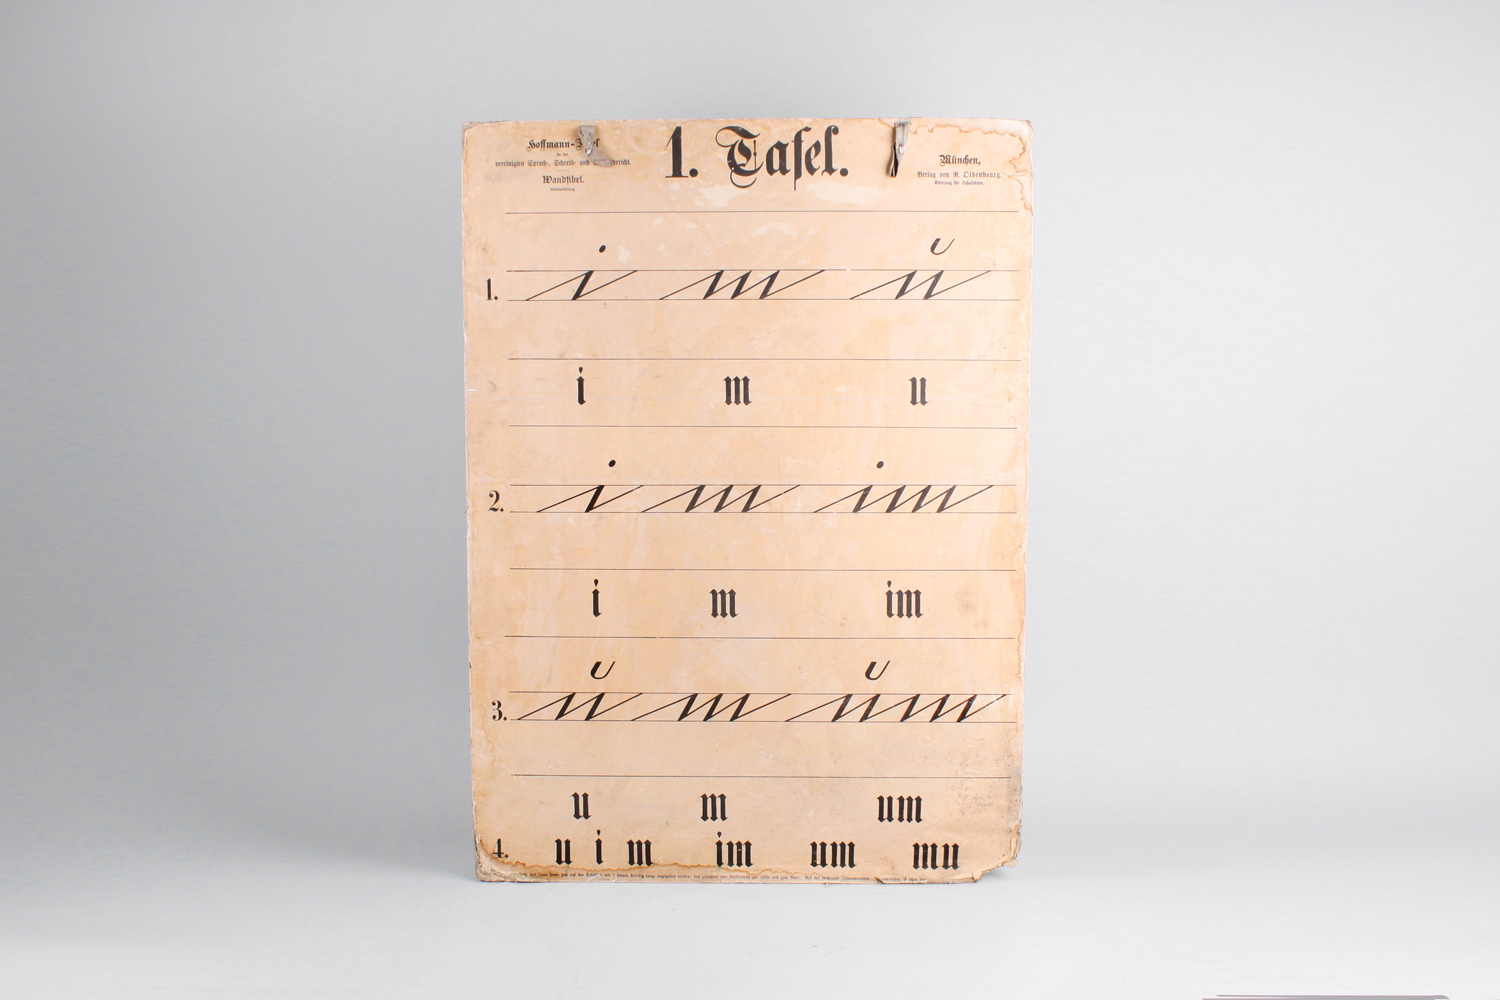 1. Tafel.
Hoffmann-
für den
vereinigten Sprach-, Schreib- und
Wandfibel.
München,
Verlag von R. Oldenbourg.
Abteilung für Schulbücher.
1. i m u
i m u
2. i m im
i m im
3. u m um
u m um
4. u i m im um mu